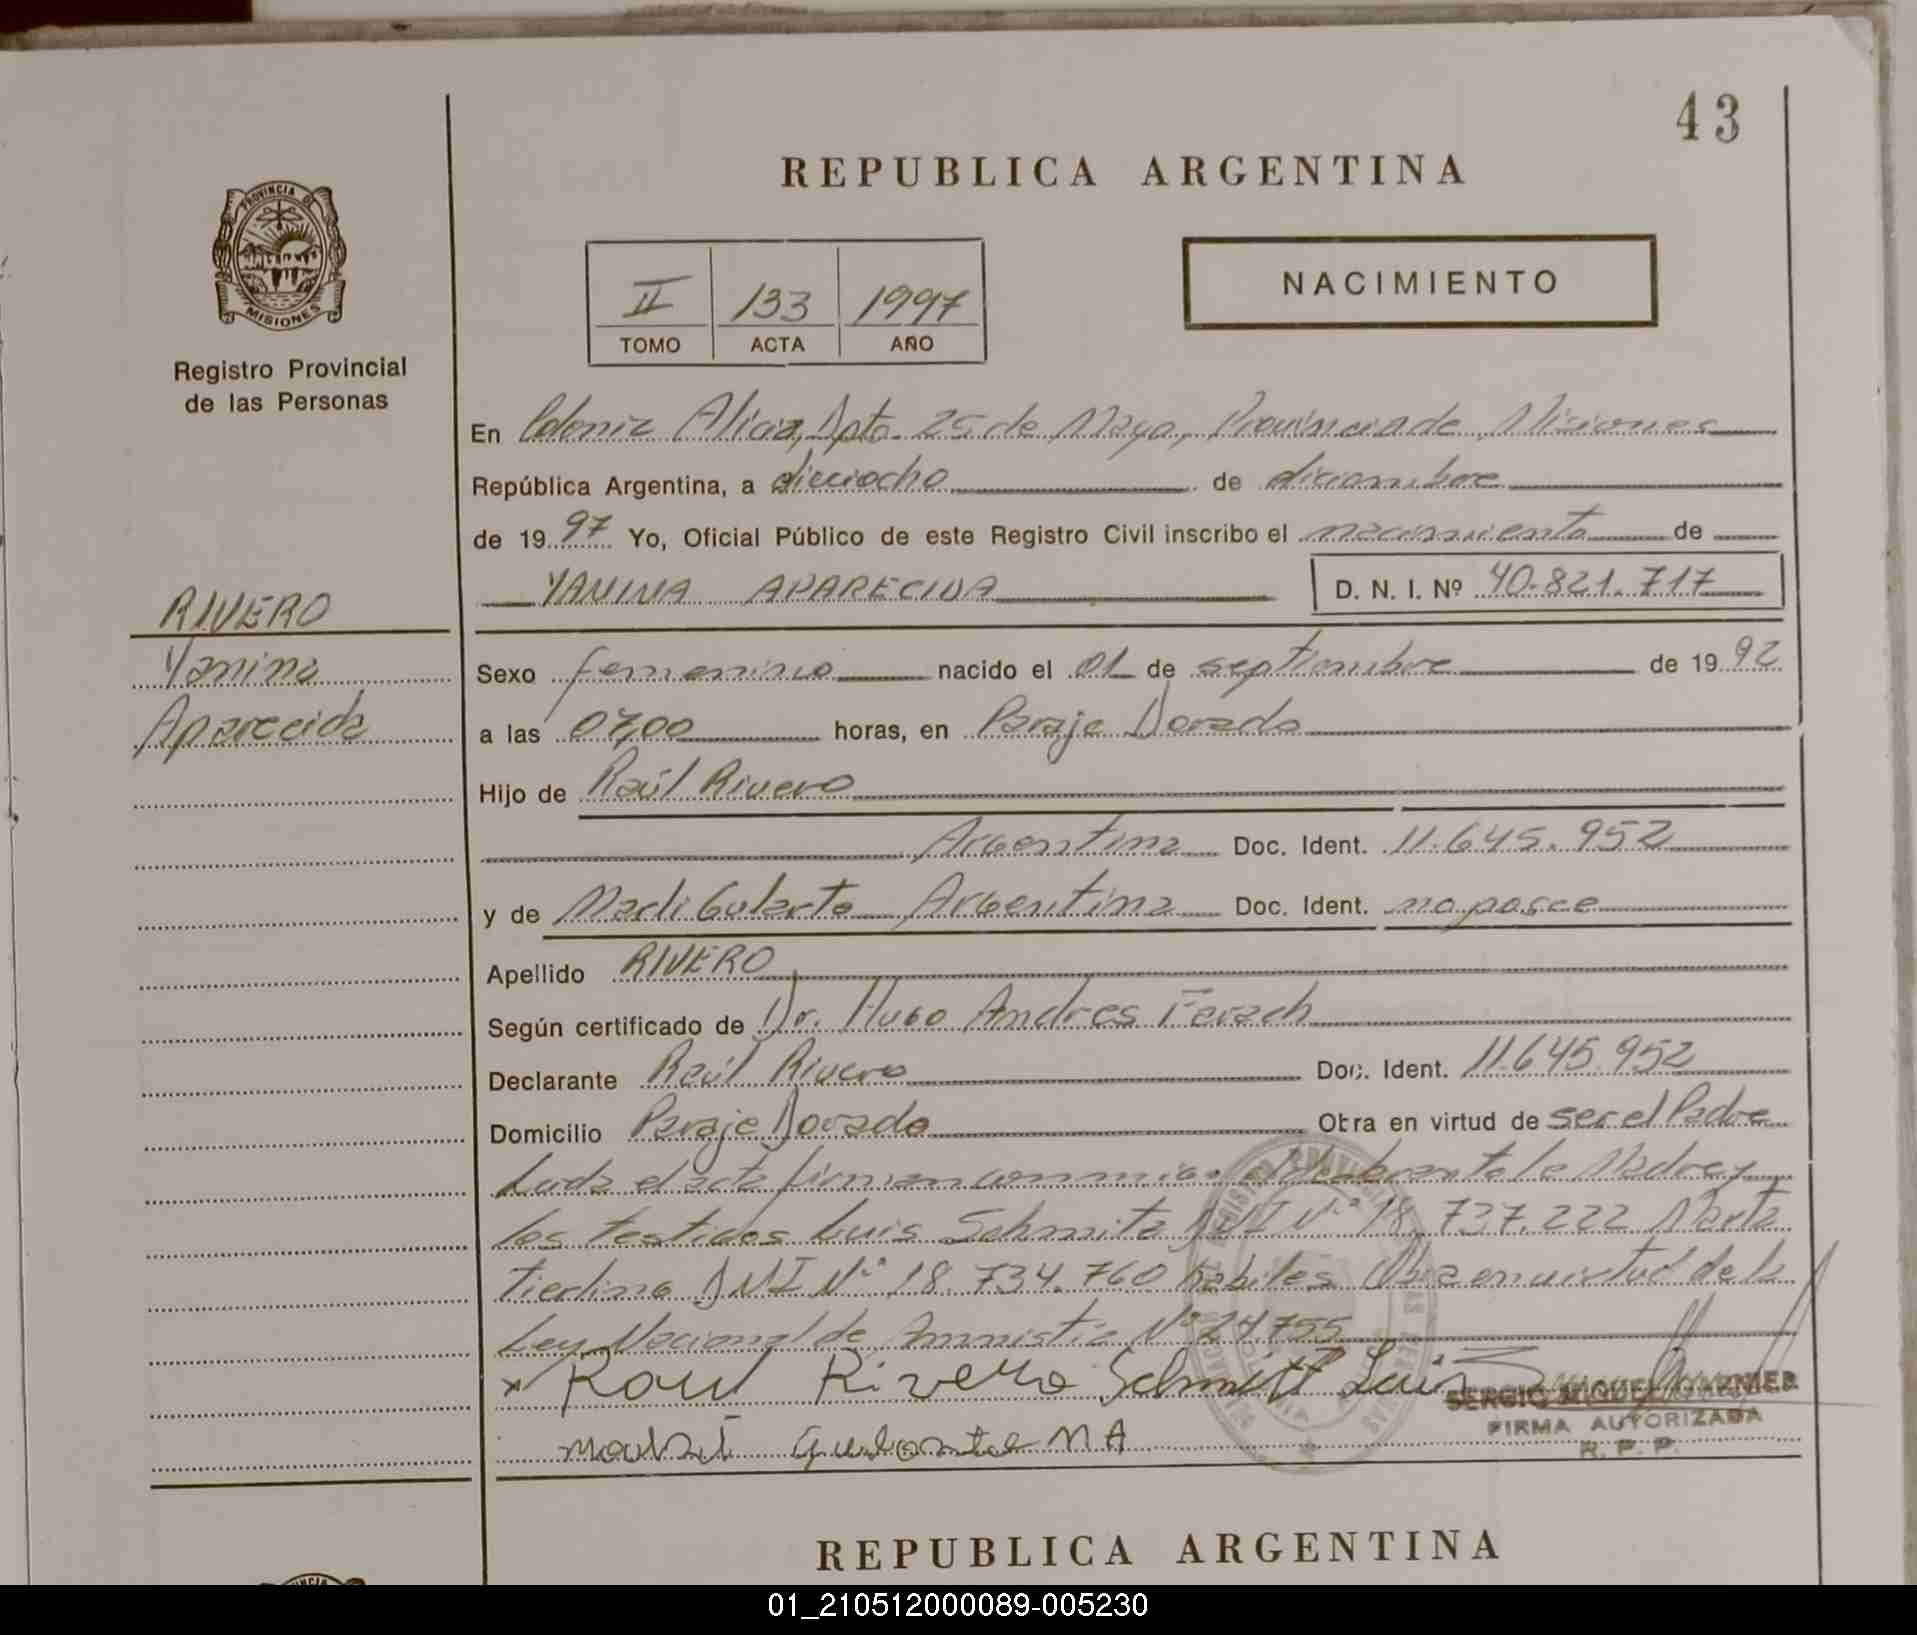 43
REPUBLICA ARGENTINA
PROVINCIA DE
MISIONES
Registro Provincial
de las Personas
II 133 1997
TOMO ACTA AÑO
NACIMIENTO
En Colonia Alicia, Dpto. 25 de Mayo, Provincia de Misiones
República Argentina, a dieciocho de diciembre
de 1997 Yo, Oficial Público de este Registro Civil inscribo el nacimiento de
YANINA APARECIDA D. N. I. Nº 40.821.717
RIVERO
Yanina
Aparecida
Sexo femenino nacido el 01 de septiembre de 1992
a las 07,00 horas, en Paraje Dorado
Hijo de Raúl Rivero
Argentina Doc. Ident. 11.645.952
y de Marli Gularte Argentina Doc. Ident. no posee
Apellido RIVERO
Según certificado de Dr. Hugo Andres Ferach
Declarante Raúl Rivero Doc. Ident. 11.645.952
Domicilio Paraje Dorado Obra en virtud de ser el Padre
Leida el acta firman conmigo la Madre y
los testigos Luis Schmitz DNI Nº 18.737.222 Marta
DNI Nº 18.734.760 habiles Obra en virtud de la
Ley Nacional de Amnistia Nº 24755
x Raul Rivero Schmitt Luis
SERGIO MIGUEL
FIRMA AUTORIZADA
R. P. P.
REPUBLICA ARGENTINA
01_210512000089-005230